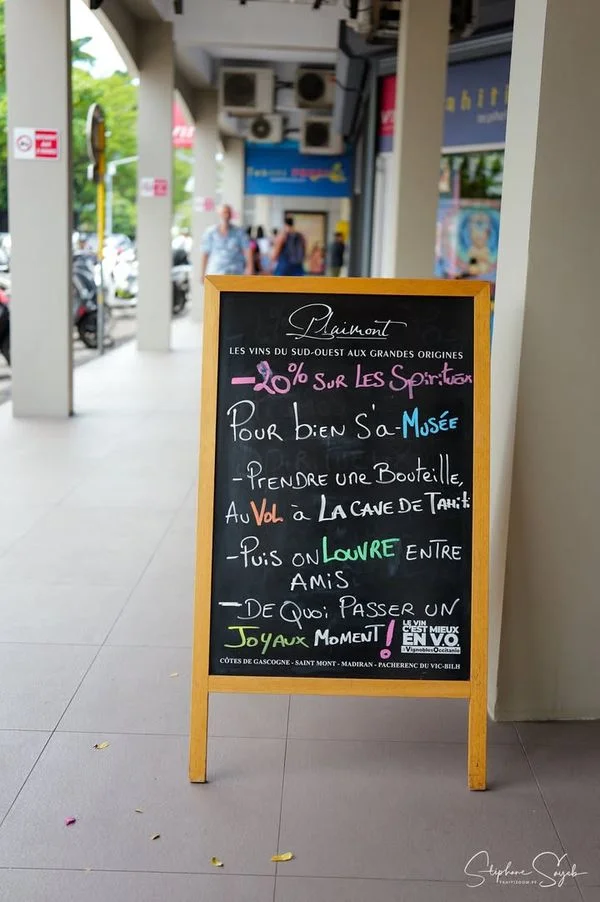 Plaimont
LES VINS DU SUD-OUEST AUX GRANDES ORIGINES
-20% SUR LES SPIRITUEUX
POUR BIEN S'A-MUSÉE
-PRENDRE UNE BOUTEILLE,
AU VOL à LA CAVE DE TAHITI
-PUIS ON LOUVRE ENTRE
AMIS
-DE QUOI PASSER UN
JOYAUX MOMENT!
LE VIN
C'EST MIEUX
EN V.O.
VignoblesOccitanie
CÔTES DE GASCOGNE - SAINT MONT - MADIRAN - PACHERENC DU VIC-BILH
Stéphane Sayeb
TAHITIZOOM.PF